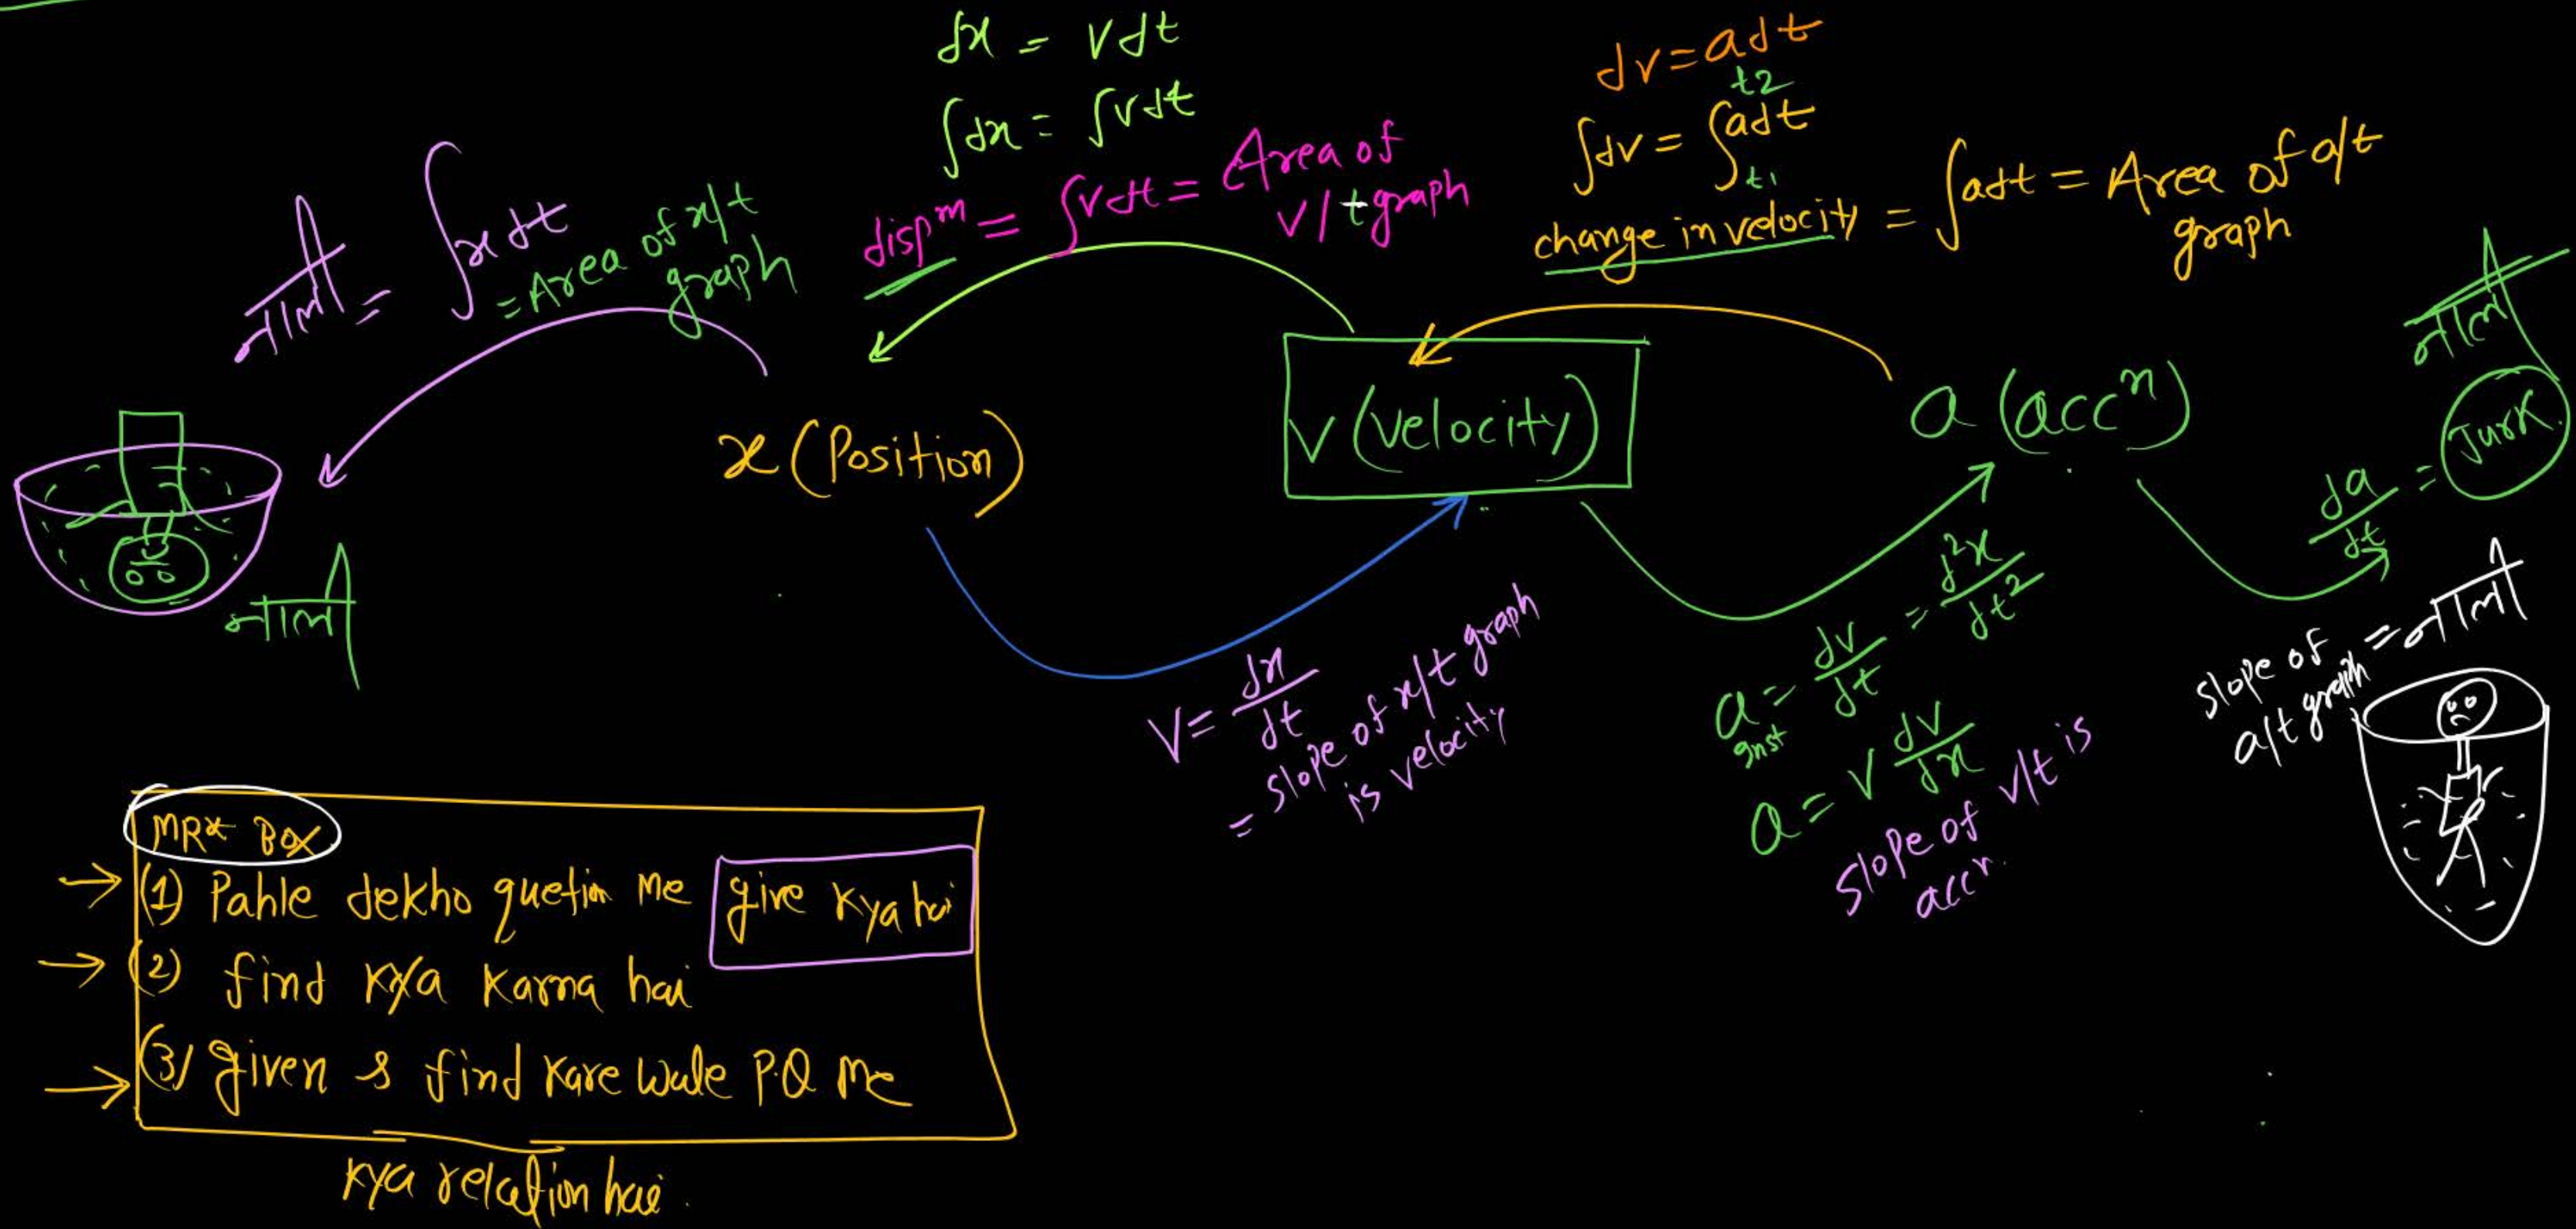 dx = vdt
∫dx = ∫vdt
dispᵐ = ∫vdt = Area of
v/t graph
dv = adt
∫dv = ∫adt
t2
t1
change in velocity = ∫adt = Area of a/t
graph
नाली = ∫x dt
= Area of x/t
graph
नाली
नाली
x (Position)
v (velocity)
a (accⁿ)
da/dt = Jurk
v = dx/dt
= slope of x/t graph
is velocity
a = dv/dt = d²x/dt²
inst
a = v dv/dx
slope of v/t is
accn.
slope of
a/t graph = नाली
MR* BOX
→ (1) Pahle dekho quetion me give kya hai
→ (2) find kya karna hai
→ (3) given & find kare wale P.Q me
kya relation hai.